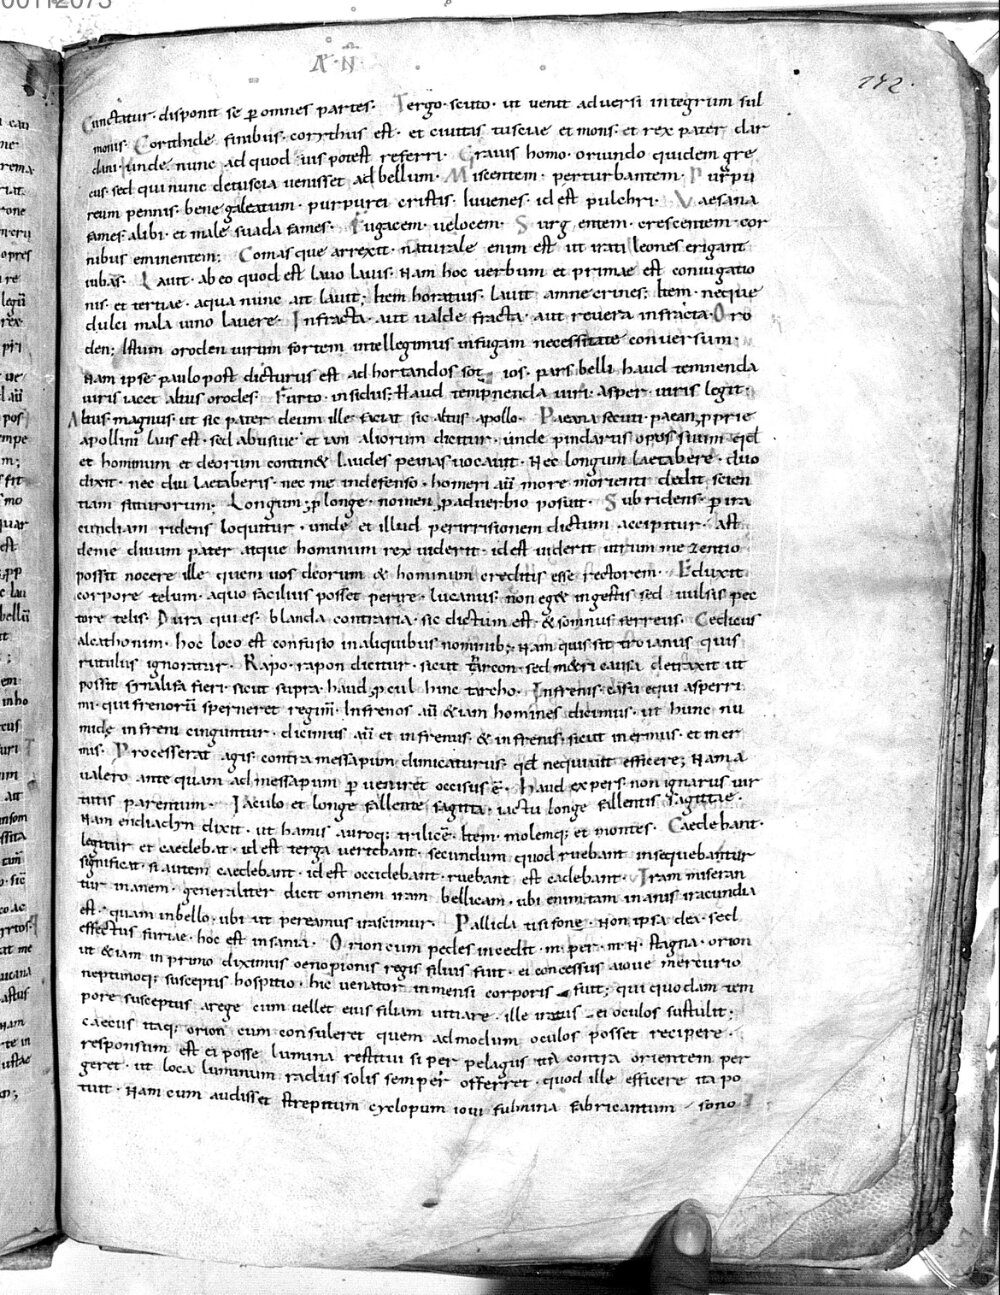 00112073
Æ·N̄
172.
Cunctatur· disponit se ꝑ omnes partes· Tergo· scuto· ut uenit aduersi integrum sul
monis· Corithide finibus· corythus est· et ciuitas tusciae et mons· et rex pater dar
dani· unde nunc ad quod uis potest referri· Graius homo· oriundo quidem gre
cus· sed qui nunc detuscia uenisset ad bellum· Miscentem· perturbantem· Purpu
reum pennis· bene galeatum· purpurei cristis· Iuuenes· id est pulchri· Vaesana
fames· alibi· et male suada fames· Fugacem· uelocem· Surgentem· crescentem· cor
nibus eminentem; Comas que arrexit· naturale enim est ut irati leones erigant
iubas· Lauit· ab eo quod est lauo lauis· Nam hoc uerbum et primae est coniugatio
nis· et tertiae· aqua nunc ait lauit; Item horatius· lauit amne crines; Item· neque
dulci mala uino lauere· Infracta· aut ualde fracta· aut reuera infracta· Oro
den; Istum oroden uirum fortem intellegimus infugam necessitate conuersum·
Nam ipse paulo post dicturus est ad hortandos ios· pars belli haud temnenda
uiris iacet altus orodes· Furto· insidiis; Haud tempnenda uiri· asper uiris legit·
Altus· magnus· ut sic pater deum ille faciat sic altus apollo· Paeana secuti· paean ꝓprie
apollini laus est· sed abusiue et iam aliorum dicitur· unde pindarus opus suum qđ
et hominum et deorum contin& laudes peanas uocauit· Nec longum laetabere· duo
dixit· nec diu laetaberis· nec me indefenso· homeri aū more morienti dedit scien
tiam futurorum; Longum· ꝓ longe· nomen ꝓ aduerbio posuit· Subridens· ꝑ ira
cundiam ridens loquitur· unde et illud per irrisionem dictum accipitur· ast
deme diuum pater atque hominum rex uiderit· id est uiderit utrum mezentio
possit nocere ille quem uos deorum & hominum creditis esse rectorem· Eduxit
corpore telum· aquo facilius posset perire· lucanus· non eg& ingestis sed uulsis pec
tore telis· Dura quies· blanda contraria· sic dictum est· & somnus ferreus· Cedicus
alcathonim· hoc loco est confusio inaliquibus nominib; Nam quis sit troianus quis
rutulus ignoratur· Rapo· rapon dicitur· sicut tarcon· sed m&ri causa detraxit ut
possit synalifa fieri· sicut supra· haud ꝓcul hinc tarcho· Infrenis· casu equi asperri
mi· qui frenorū sperneret regim̄· Infrenos aū &iam homines dicimus· ut hunc nu
mide infreni cinguntur· dicimus aū et infrenus· & infrenis· sicut inermus· et iner
mis· Processerat agis· contra messapum dimicaturus· qđ nequiuit efficere; Nam a
ualero ante quam ad messapum ꝑueniret occisus ē· Haud expers· non ignarus uir
tutis parentum· Iaculo et longe fallente sagitta· iactu longe fallentis sagittae·
Nam endiadyn dixit· ut hamis auroq; trilicē· Item· molemq; et montes· Caedebant·
legitur et caedebat· id est terga uertebant· secundum quod ruebant insequebantur
significat· si autem caedebant· id est occidebant· ruebant est cadebant· Iram miseran
tur inanem· generaliter dicit omnem iram bellicam· ubi enim tam inanis iracundia
est· quam inbello· ubi ut pereamus irascimur· Pallida tisifone· Non ipsa dea· sed
effectus furiae· hoc est insania· Orion cum pedes incedit· stagna· orion
ut &iam in primo diximus oenopionis regis filius fuit· ei concessus aioue mercurio
neptunoq; susceptis hospitio· hic uenator inmensi corporis fuit; qui quodam tem
pore susceptus arege cum uellet eius filiam uitiare· ille iratus ei oculos sustulit;
caecus itaq; orion cum consuleret quem admodum oculos posset recipere·
responsum est ei posse lumina restitui si per pelagus ita contra orientem per
geret· ut loca luminum radiis solis semper offerret· quod ille efficere ita po
tuit· Nam cum audisset strepitum cyclopum ioui fulmina fabricantum sono